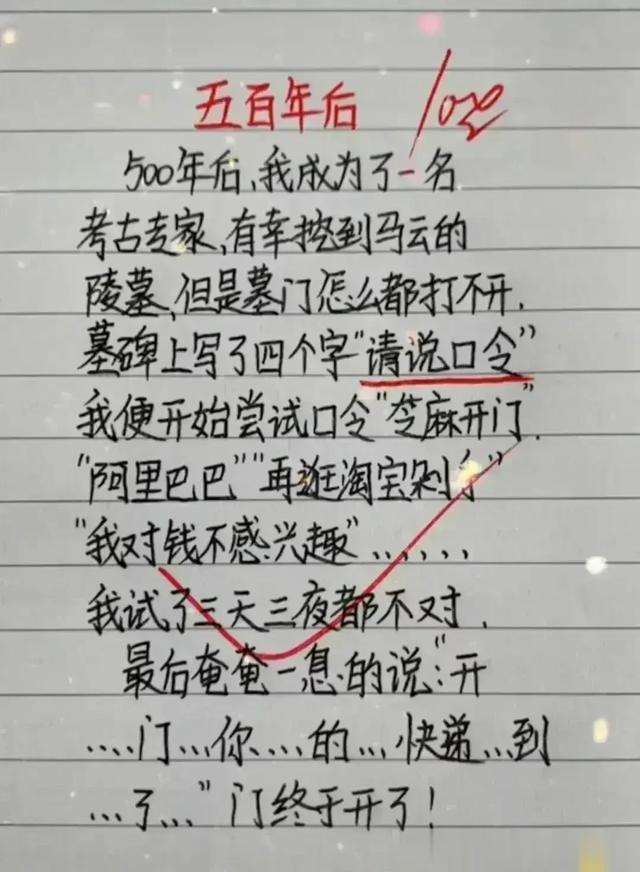 五百年后 100
500年后,我成为了一名
考古专家,有幸挖到马云的
陵墓,但是墓门怎么都打不开.
墓碑上写了四个字"请说口令"
我便开始尝试口令"芝麻开门".
"阿里巴巴""再逛淘宝剁手"
"我对钱不感兴趣"......
我试了三天三夜都不对.
最后奄奄一息的说:"开
....门...你....的...快递...到
...了..."门终于开了!